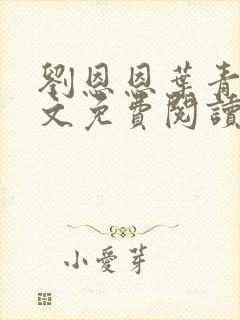 劉恩恩葉青
文免費閱讀
小愛芽